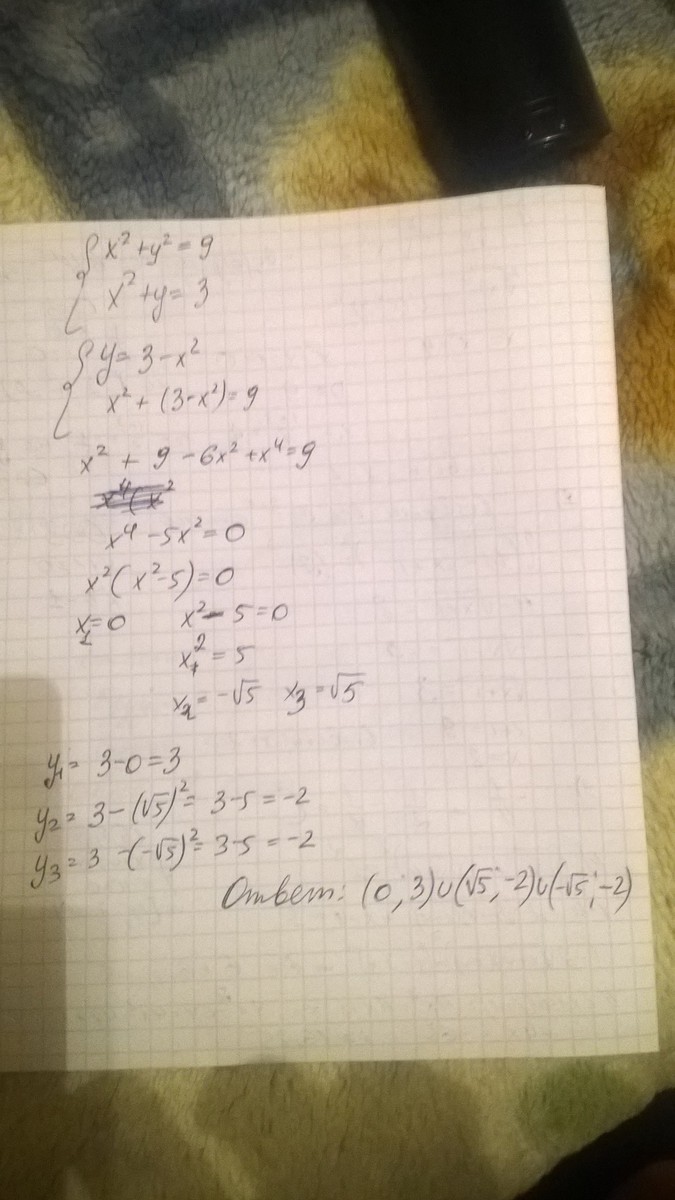 x² + y² = 9
x² + y = 3
y = 3 - x²
x² + (3 - x²) = 9
x² + 9 - 6x² + x⁴ = 9
x⁴ - 5x² = 0
x²(x² - 5) = 0
x₁ = 0 x² - 5 = 0
x² = 5
x₂ = -√5 x₃ = √5
y₁ = 3 - 0 = 3
y₂ = 3 - (√5)² = 3 - 5 = -2
y₃ = 3 - (-√5)² = 3 - 5 = -2
Ответ: (0; 3)∪(√5; -2)∪(-√5; -2)